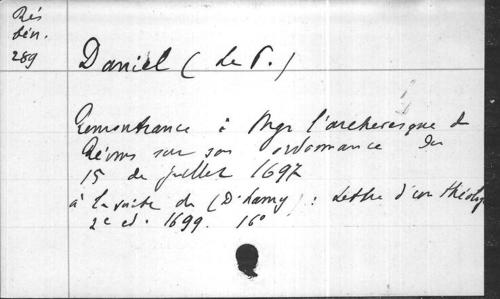 Rés
Lin.
289
Daniel (Le P.)
Remontrance à Mgr l'archevesque de
Reims sur son ordonnance du
15 de juillet 1697
à la suite de (D. Lamy) : Lettre d'un théolog
2e ed. 1699. 16°